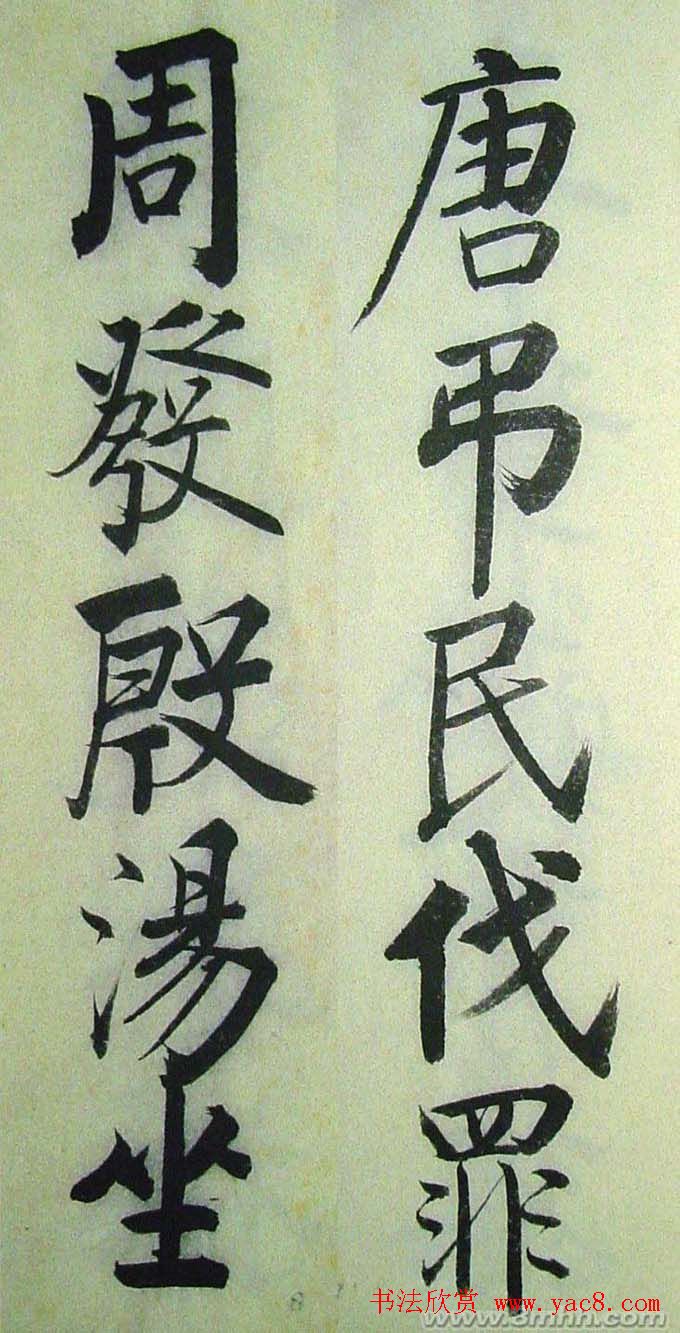 唐弔民伐罪
周發殷湯坐
书法欣赏 www.yac8.com
www.8mhh.com